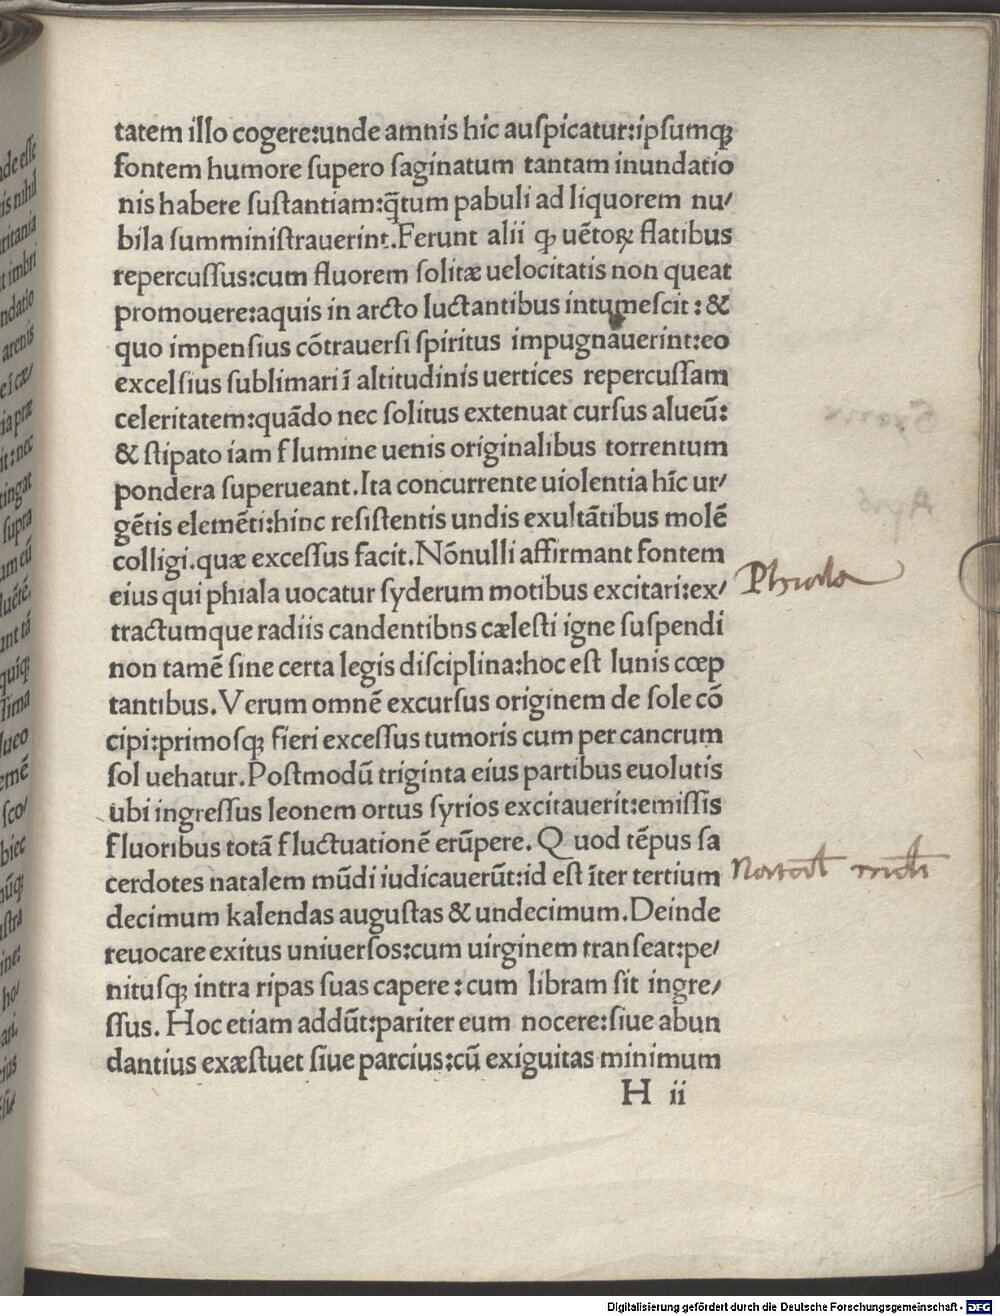 tatem illo cogere:unde amnis hic auſpicatur:ipſumqꝫ
fontem humore ſupero ſaginatum tantam inundatio
nis habere ſuſtantiam:q̃tum pabuli ad liquorem nu/
bila ſumminiſtrauerint.Ferunt alii ꝙ uẽtoꝝ flatibus
repercuſſus:cum fluorem ſolitæ uelocitatis non queat
promouere:aquis in arcto luctantibus intumeſcit:&
quo impenſius cõtrauerſi ſpiritus impugnauerint:eo
excelſius ſublimari ĩ altitudinis uertices repercuſſam
celeritatem:quãdo nec ſolitus extenuat curſus alueũ:
& ſtipato iam flumine uenis originalibus torrentum
pondera ſuperueant.Ita concurrente uiolentia hĩc ur/
gẽtis elemẽti:hinc reſiſtentis undis exultãtibus molẽ
colligi.quæ exceſſus facit.Nõnulli affirmant fontem
eius qui phiala uocatur ſyderum motibus excitari:ex/
Phiala
tractumque radiis candentibns cæleſti igne ſuſpendi
non tamẽ ſine certa legis diſciplina:hoc eſt lunis cœp
tantibus.Verum omnẽ excurſus originem de ſole cõ
cipi:primoſqꝫ fieri exceſſus tumoris cum per cancrum
ſol uehatur.Poſtmodũ triginta eius partibus euolutis
ubi ingreſſus leonem ortus ſyrios excitauerit:emiſſis
fluoribus totã fluctuationẽ erũpere.Quod tẽpus ſa
cerdotes natalem mũdi iudicauerũt:id eſt ĩter tertium
decimum kalendas auguſtas & undecimum.Deinde
reuocare exitus uniuerſos:cum uirginem tranſeat:pe/
nituſqꝫ intra ripas ſuas capere:cum libram ſit ingre/
ſſus. Hoc etiam addũt:pariter eum nocere:ſiue abun
dantius exæſtuet ſiue parcius:cũ exiguitas minimum
H ii
Digitalisierung gefördert durch die Deutsche Forschungsgemeinschaft - DFG